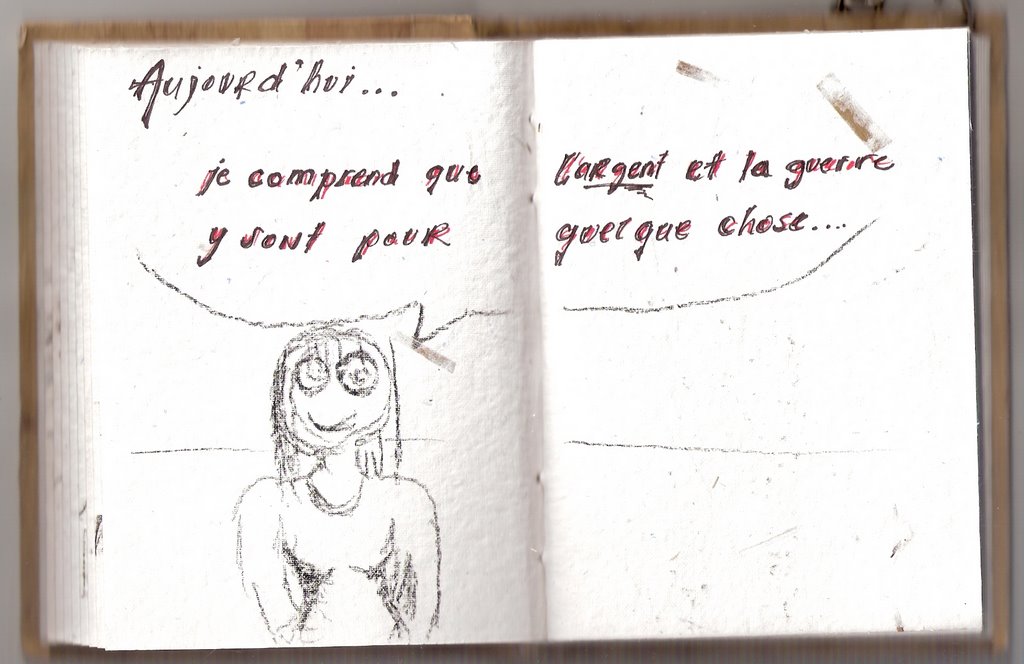 Aujourd'hui...
je comprend que l'argent et la guerre
y sont pour quelque chose....